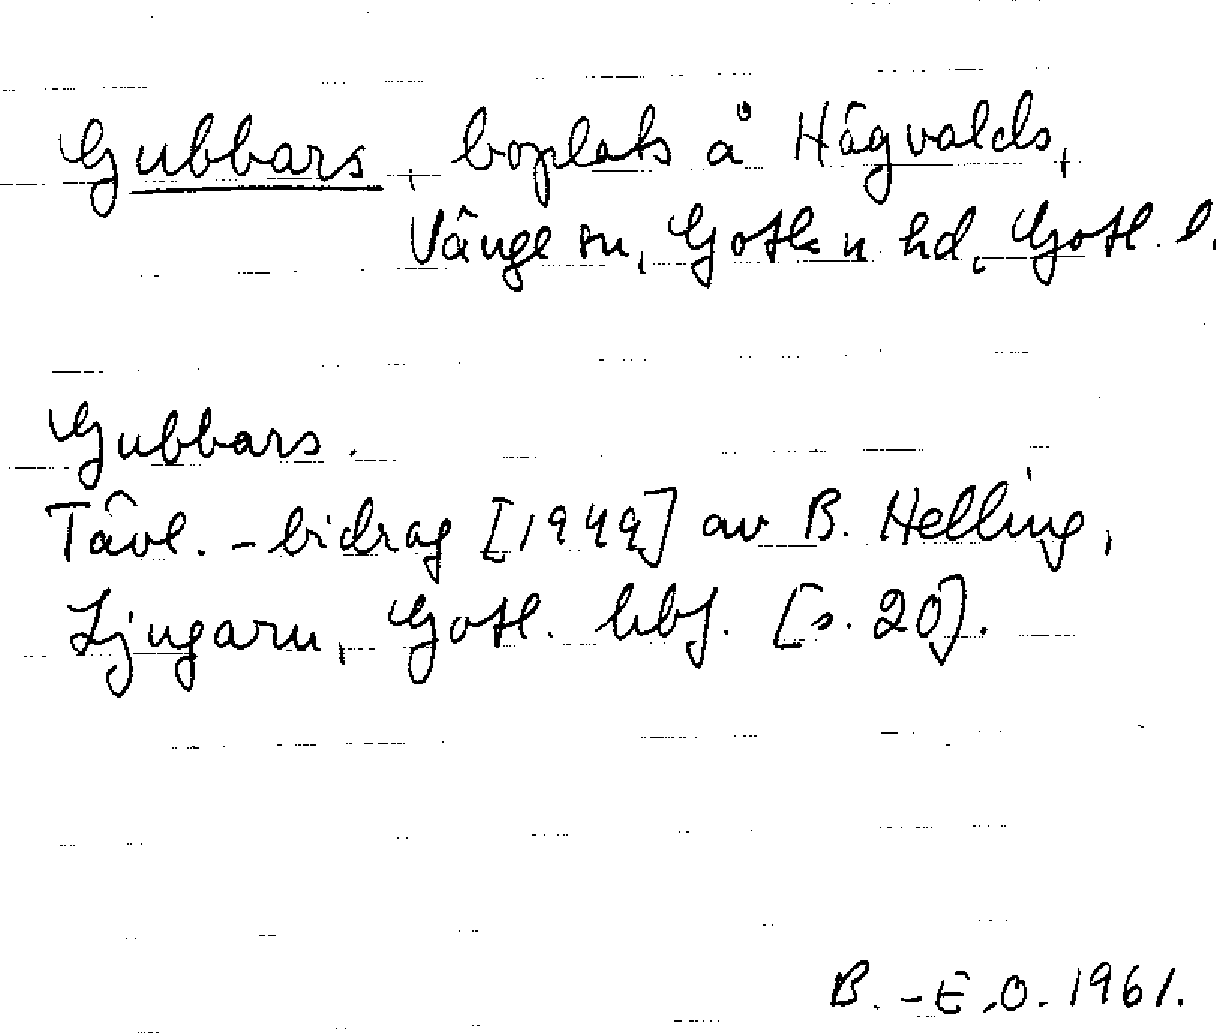 Gubbars, boplats å Hägvalds,
Vänge sn, Gothems hd, Gotl. l.
Gubbars.
Tävl.-bidrag [1949] av B. Helling,
Ljugarn, Gotl. hbf. [s. 20].
B.-E.O. 1961.